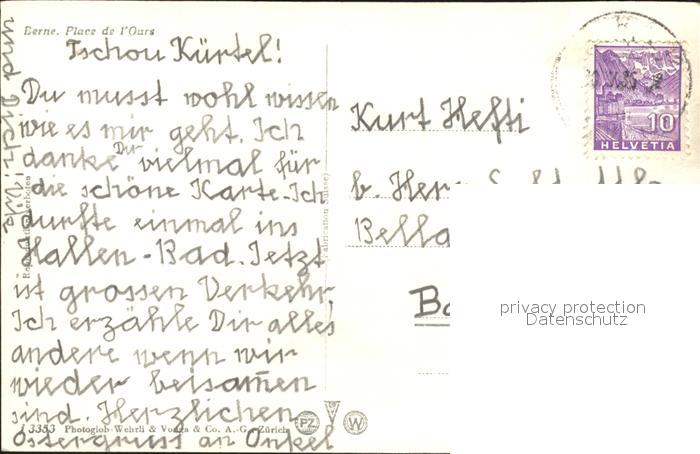 Berne. Place de l'Ours
Tschou Kürtel!
Du musst wohl wissen
wie es mir geht. Ich
danke Dir vielmal für
die schöne Karte. Ich
durfte einmal ins
Hallen-Bad. Jetzt
ist grossen Verkehr.
Ich erzähle Dir alles
andere wenn wir
wieder beisamen
sind. Herzlichen
Ostergruss an Onkel
und Dich!
Kurt Hefti
b. Her
Bella
Ba
HELVETIA
10
privacy protection
Datenschutz
(Fabrication Suisse)
13353 Photoglob-Wehrli & Vouga & Co. A.-G., Zürich
PZ
W